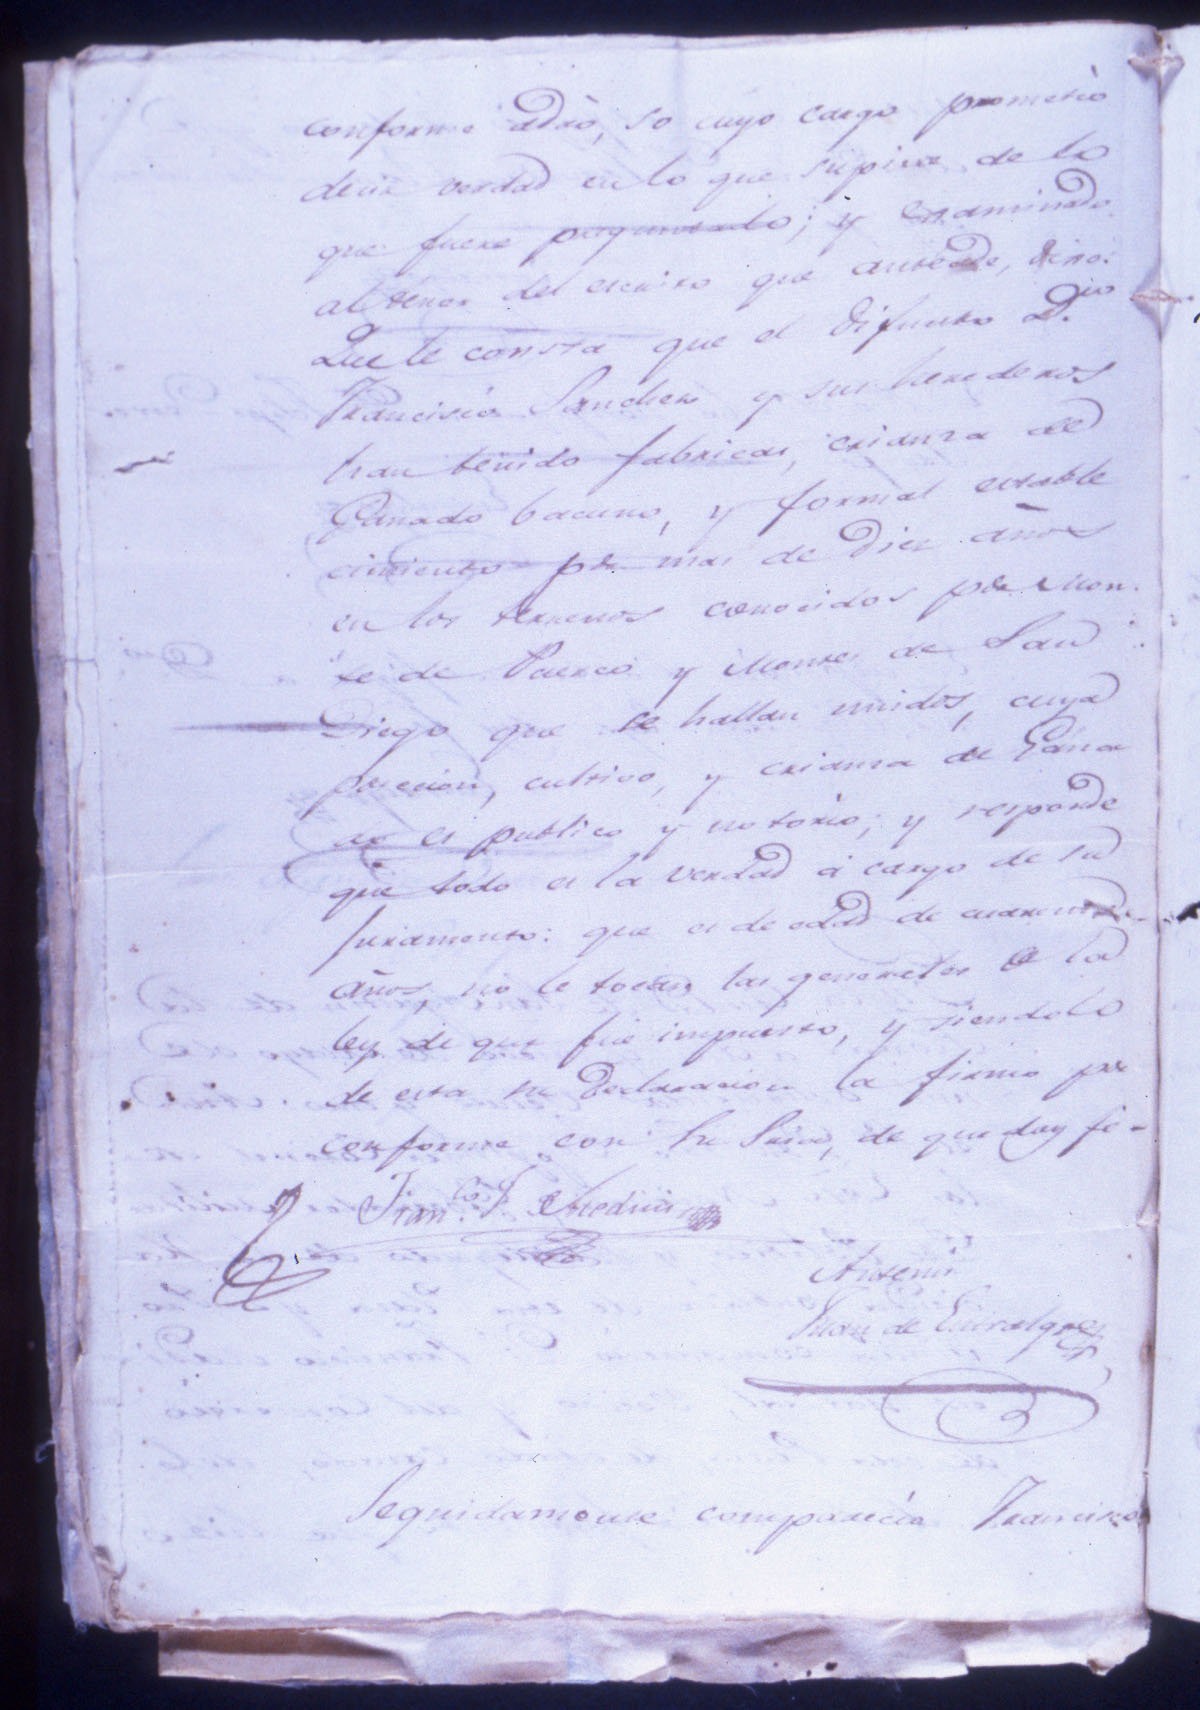 conforme a dro, so cuyo cargo prometio
decir verdad en lo que supiere de lo
que fuere preguntado; y examinado
al tenor del escrito que antecede, dixo:
Que le consta que el difunto Dn
Francisco Sanchez y sus herederos
han tenido fabricas, crianza de
Ganado bacuno, y formal estable
cimiento pr mas de Diez años
en los terrenos conocidos pr Mon-
te de Puerco y Montes de San
Diego que se hallan unidos, cuya
posecion, cultivo, y crianza de Gana
do es publico y notorio; y responde
que todo es la verdad á cargo de su
juramento: que es de edad de cuarenta
años, no le tocan las generales de la
ley de que fue impuesto, y siendolo
de esta su Declaracion la firmó pr
conforme con su Sria, de que doy fe-
Franco J. Medina
Antemi
Juan de Entralgo
Seguidamente comparecio Francisco